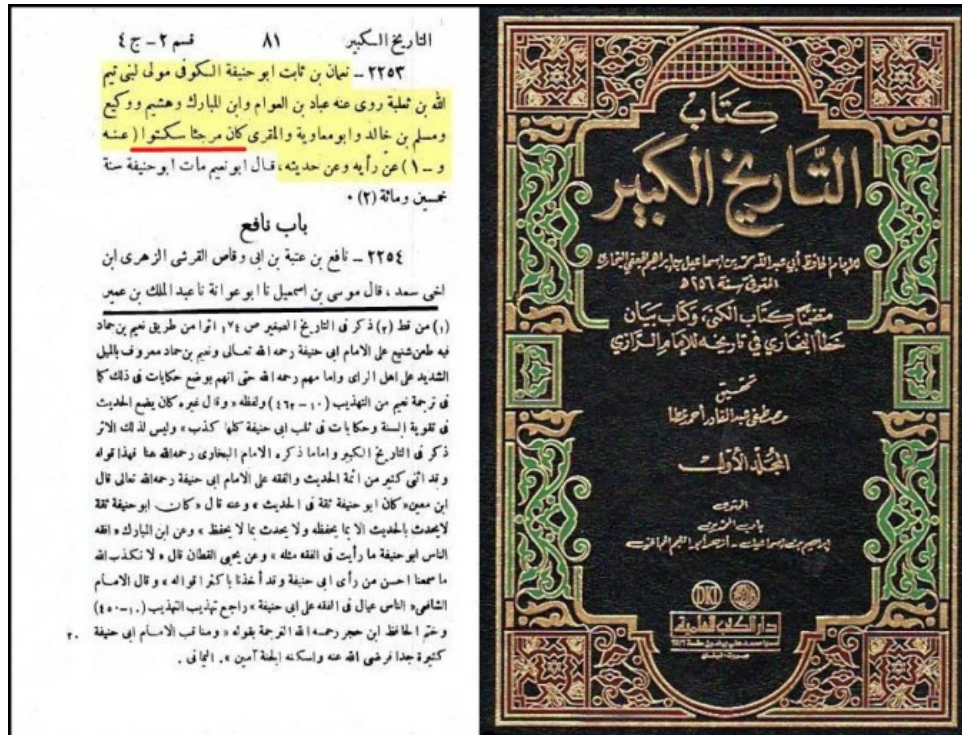 التاريخ الكبير ٨١ قسم ٢ – ج ٤
٢٢٥٣ – نعمان بن ثابت ابو حنيفة الكوفى مولى لبنى تيم
الله بن ثعلبة روى عنه عباد بن العوام وابن المبارك وهشيم ووكيع
ومسلم بن خالد وابو معاوية والمقرى كان مرجئا سكتوا (عنه
و – ١) عن رأيه وعن حديثه، قال ابو نعيم مات ابو حنيفة سنة
خمسين ومائة (٢) ٠
باب نافع
٢٢٥٤ – نافع بن عتبة بن ابى وقاص القرشى الزهرى ابن
اخى سعد، قال موسى بن اسمعيل نا ابو عوانة نا عبد الملك بن عمير
(١) من قط (٢) ذكر فى التاريخ الصغير ص ١٧٤ اثرا من طريق نعيم بن حماد
فيه طعن شنيع على الامام ابى حنيفة رحمه الله تعالى ونعيم بن حماد معروف بالميل
الشديد على اهل الراى واما مهم رحمه الله حتى انهم بوضع حكايات فى ذلك كما
فى ترجمة نعيم من التهذيب (١٠ – ٤٦٢) ولفظه « وقال غيره كان يضع الحديث
فى تقوية السنة وحكايات فى ثلب ابى حنيفة كلها كذب » وليس لذلك الاثر
ذكر فى التاريخ الكبير واما ما ذكره الامام البخارى رحمه الله هنا فهذا قوله
وقد اثنى كثير من ائمة الحديث والفقه على الامام ابى حنيفة رحمه الله تعالى قال
ابن معين « كان ابو حنيفة ثقة فى الحديث » وعنه قال « كان ابو حنيفة ثقة
لا يحدث بالحديث الا بما يحفظه ولا يحدث بما لا يحفظ » وعن ابن المبارك « افقه
الناس ابو حنيفة ما رأيت فى الفقه مثله » وعن يحيى القطان قال « لا نكذب الله
ما سمعنا احسن من رأى ابى حنيفة وقد أخذنا باكثر اقواله » وقال الامام
الشافعى « الناس عيال فى الفقه على ابى حنيفة » راجع تهذيب التهذيب (١٠–٤٥٠)
وختم الحافظ ابن حجر رحمه الله الترجمة بقوله « ومناقب الامام ابى حنيفة ٢٠
كثيرة جدا فرضى الله عنه واسكنه الجنة آمين ». اليمانى .
كتاب
التاريخ الكبير
للإمام الحافظ أبي عبد الله محمد بن اسماعيل بن إبراهيم الجعفي البخاري
المتوفى سنة ٢٥٦ هـ
متضمنا كتاب الكنى، وكتاب بيان
خطأ البخاري في تاريخه للإمام الرازي
تحقيق
مصطفى عبد القادر أحمد عطا
المجلد الأول
المحتوى
DKI
دار الكتب العلمية